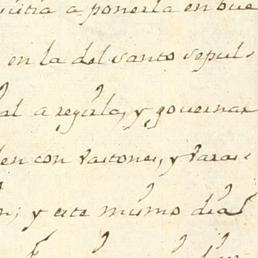 a ponerla en bue
en la del santo sepul-
al a regirla, y governar
en con vastones, y varas-
y este mismo dia